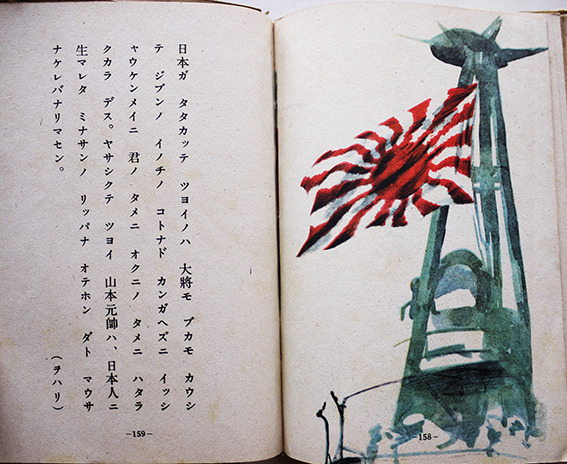 日本ガ タタカッテ ツヨイノハ 大將モ ブカモ カウシ
テ ジブンノ イノチノ コトナド カンガヘズニ イッシ
ャウケンメイニ 君ノ タメニ オクニノ タメニ ハタラ
クカラ デス。ヤサシクテ ツヨイ 山本元帥ハ、日本人ニ
生マレタ ミナサンノ リッパナ オテホン ダト マウサ
ナケレバナリマセン。
(ヲハリ)
—159—
—158—